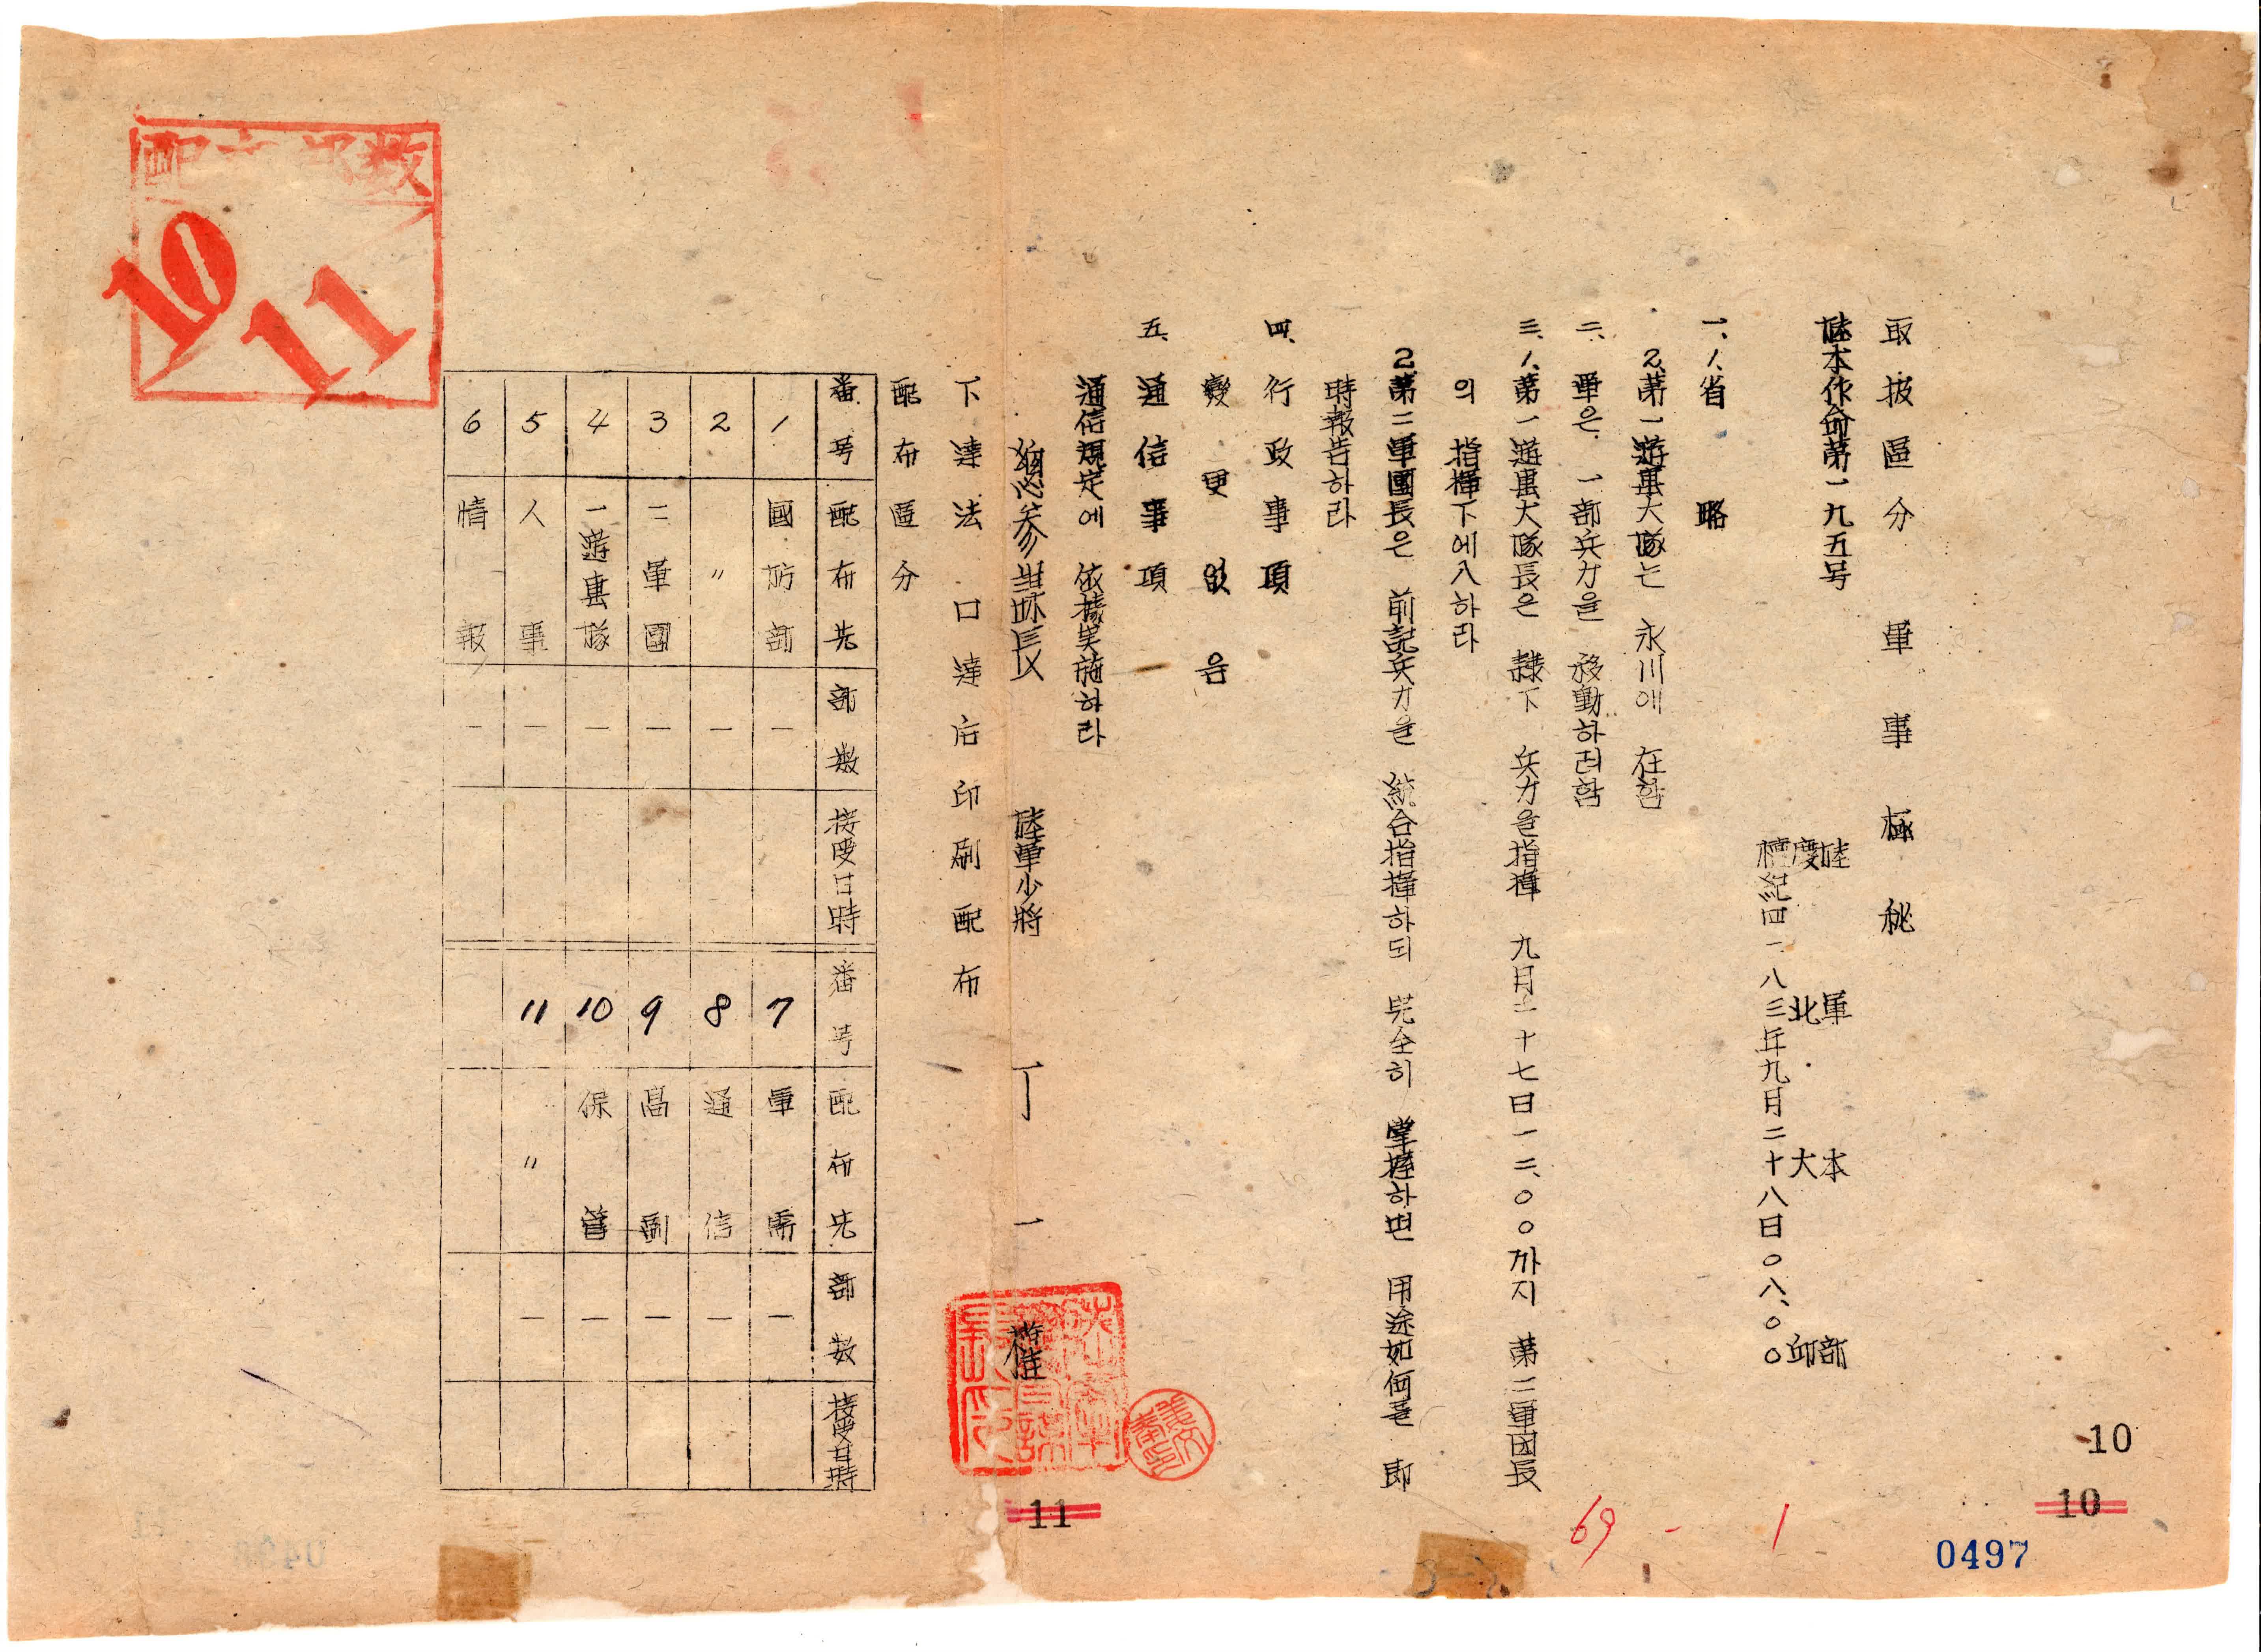 取扱區分 軍事極秘
陸本作命第一九五号
陸軍本部
慶北大邱
檀紀四二八三年九月二十八日〇八、〇〇
一、1、省略
2、第一遊擊大隊는 永川에 在함
二、軍은 一部兵力을 移動하려함
三、1、第一遊擊大隊長은 隷下 兵力을 指揮 九月二十七日一二、〇〇까지 第二軍團長
의 指揮下에入하라
2、第二軍團長은 前記兵力을 統合指揮하되 完全히 掌握하면 用途如何를 即
時報告하라
四、行政事項
變更 없음
五、通信事項
通信規定에 依據実施하라
總參謀長 陸軍少將 丁 一 權
下達法 口達后印刷配布
配布區分
番号 配布先 部数 接受日時 番号 配布先 部数 接受日時
1 國防部 一 7 軍需 一
2 〃 一 8 通信 一
3 二軍團 一 9 高副 一
4 一遊擊隊 一 10 保管 一
5 人事 一 11 〃 一
6 情報 一
配 部数
10
11
10
10
11
69 - 1
0497